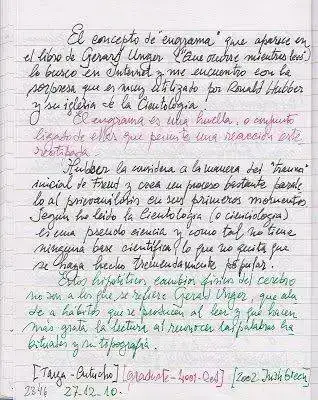 El concepto de "engrama" que aparece en
el libro de Gerard Unger (¿Qué ocurre mientras lees?)
lo busco en Internet y me encuentro con la
sorpresa que es muy utilizado por Ronald Hubber
y su iglesia de la Cientología!
El engrama es una huella o conjunto
ligado de ellas que permite una reacción este
reotipada.
Hubber la considera a la manera del "trauma"
inicial de Freud y crea un proceso bastante parale
lo al psicoanálisis en sus primeros momentos
Según he leído la Cientología (o cienciología)
es una pseudo ciencia y como tal no tiene
ninguna base científica, lo que no quita que
se haya hecho tremendamente popular.
Estos hipotéticos cambios físicos del cerebro
no son a los que se refiere Gerald Unger, que alu
de a hábitos que se producen al leer y que hacen
más grata la lectura al reconocer las palabras ha
bituales y su topografía.
[graduate - 4001-001] [2002 Irish Green]
23:46 27-12-10.